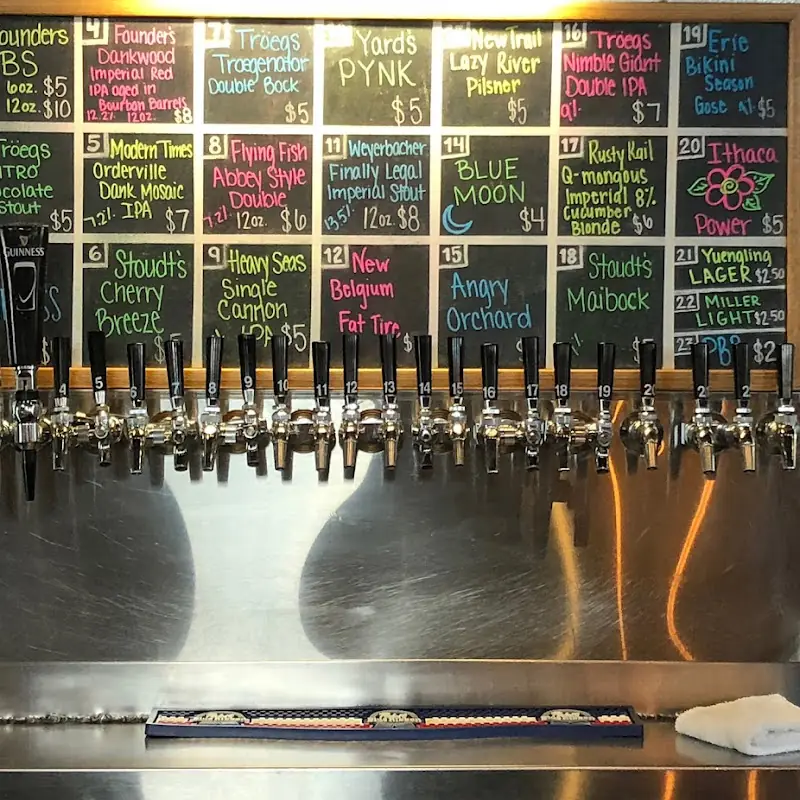 ounders
BS
6oz. $5
12oz. $10
4
Founder's
Dankwood
Imperial Red
IPA aged in
Bourbon Barrels
12.2% 12oz. $8
7
Tröegs
Troegenator
Double Bock
$5
Yard's
PYNK
$5
New Trail
Lazy River
Pilsner
$5
16
Tröegs
Nimble Giant
Double IPA
9% $7
19
Erie
Bikini
Season
Gose $5
röegs
ITRO
ocolate
Stout
$5
5
Modern Times
Orderville
Dank Mosaic
IPA
7.2% $7
8
Flying Fish
Abbey Style
Double
7.2% 12oz. $6
11
Weyerbacher
Finally Legal
Imperial Stout
13.5% 12oz. $8
14
BLUE
MOON
$4
17
Rusty Rail
Q-mongous
Imperial 8%
Cucumber
Blonde $6
20
Ithaca
Flower
Power $5
6
Stoudt's
Cherry
Breeze
9
Heavy Seas
Single
Cannon
IPA $5
12
New
Belgium
Fat Tire
$
15
Angry
Orchard
18
Stoudt's
Maibock
21 Yuengling
LAGER $2.50
22 MILLER
LIGHT $2.50
23 PBR $2
GUINNESS
4
5
6
7
8
9
10
11
12
13
14
15
16
17
18
19
20
2
2